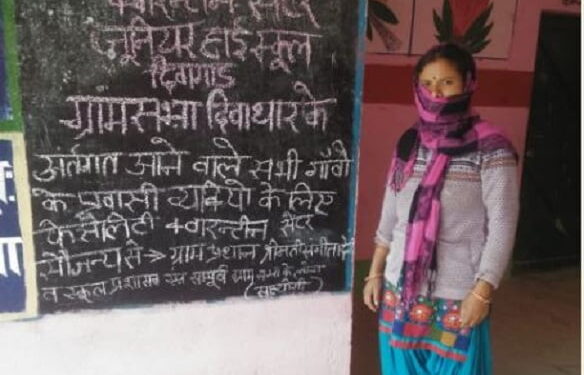 क्वारन्टीन सेंटर
जूनियर हाई स्कूल
दिगगाड
ग्रामसभा दिवाधार के
अंर्तगत आने वाले सभी गाँवो
के प्रवासी व्यक्तियो के लिए
फेसैलिटी क्वारन्टीन सेंटर
सौजन्य से → ग्राम प्रधान श्रीमती
व स्कूल प्रशासन एंव ग्राम
(सहयोगी)